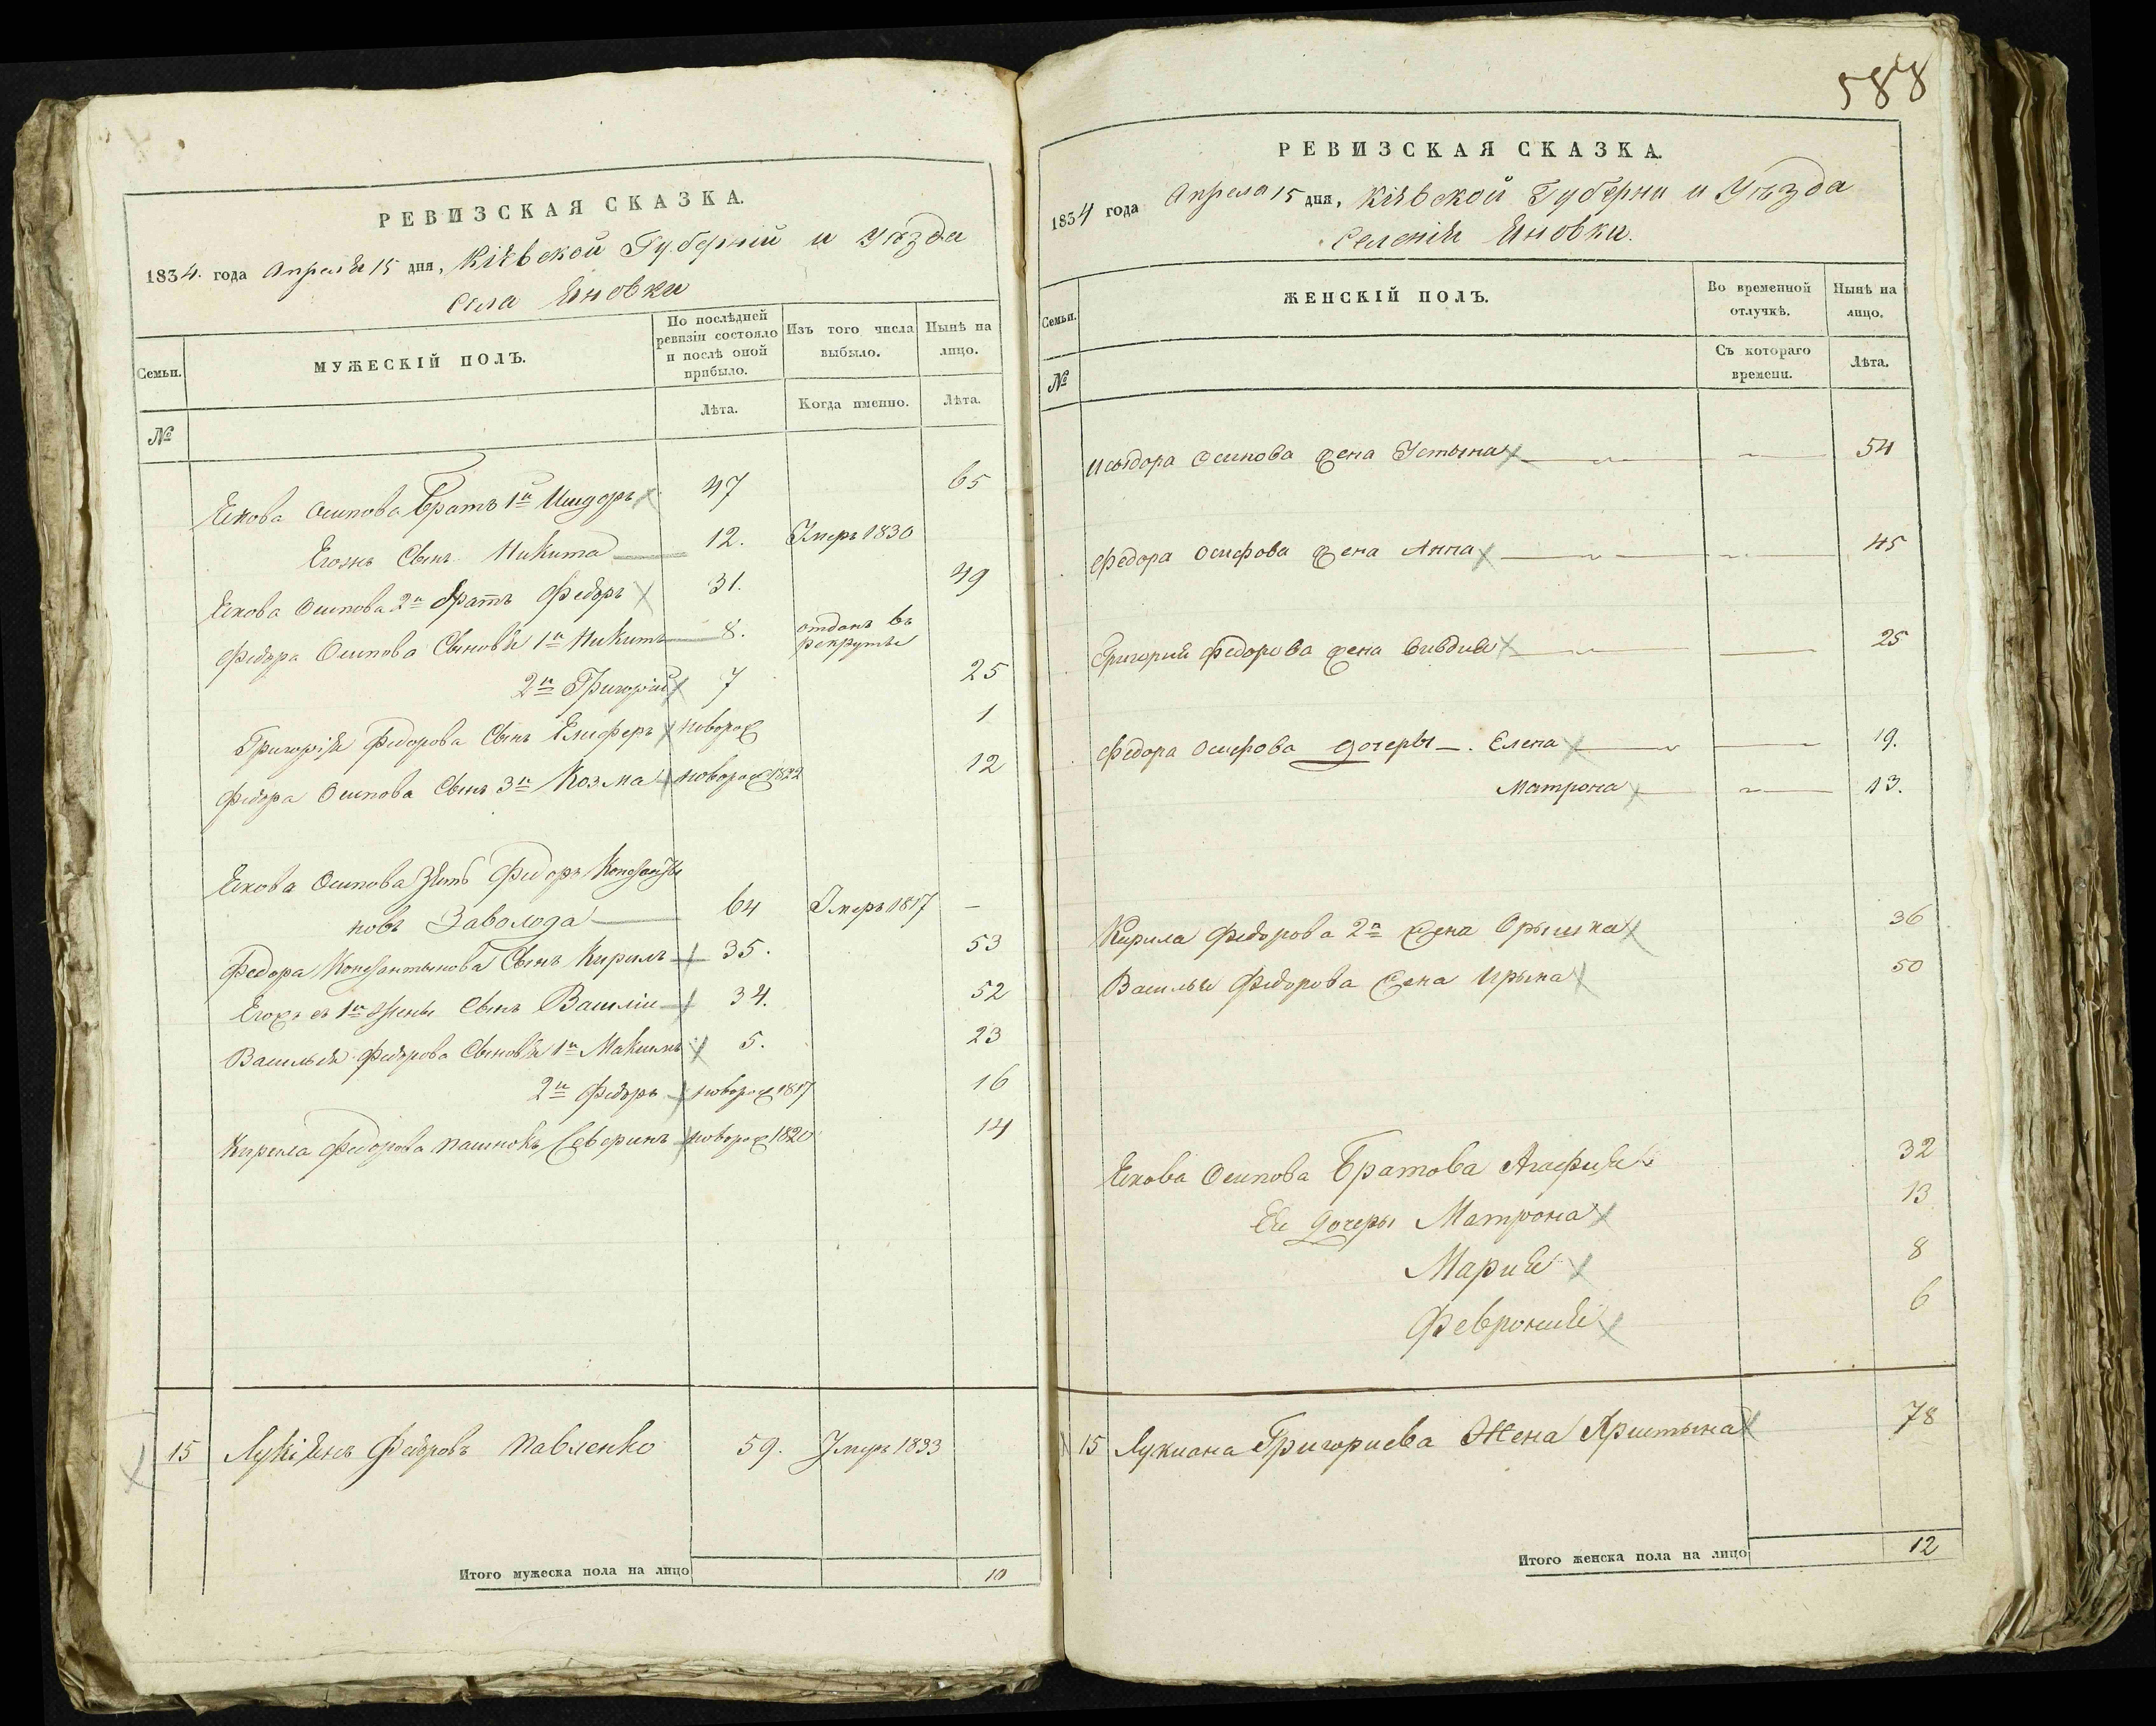 РЕВИЗСКАЯ СКАЗКА.
1834. года Апреля 15 дня, Кіевской Губерніи и Уѣзда
Села Яновки
Семьи.
МУЖЕСКІЙ ПОЛЪ.
По послѣдней ревизіи состояло и послѣ оной прибыло.
Изъ того числа выбыло.
Нынѣ на лицо.
№
Лѣта.
Когда именно.
Лѣта.
Якова Осипова Братъ 1й Исидоръ 47 65
Его же Сынъ Никита 12. Умеръ 1830
Якова Осипова 2й братъ Федоръ 31. 49
Федора Осипова Сыновья 1й Никита 8. отданъ въ рекруты
2й Григорій 7 25
Григорія Федорова Сынъ Елиферъ новорож 1
Федора Осипова Сынъ 3й Козма новорож 1822 12
Якова Осипова Зять Федоръ Константы
новъ Заволода 64 Умеръ 1817 —
Федора Константынова Сынъ Кирилъ 35. 53
Егожъ съ 1й Жены Сынъ Василіи 34. 52
Василья Федорова Сыновья 1й Макимъ 5. 23
2й Федоръ новорож 1817 16
Кирила Федорова пасинокъ Северинъ новорож 1820 14
15 Лукіянъ Федоровъ Павленко 59. Умеръ 1833
Итого мужеска пола на лицо 10
588
РЕВИЗСКАЯ СКАЗКА.
1834 года Апреля 15 дня, Кіевской Губерни и Уѣзда
Селенія Яновки.
Семьи.
ЖЕНСКІЙ ПОЛЪ.
Во временной отлучкѣ.
Нынѣ на лицо.
№
Съ котораго времени.
Лѣта.
Исыдора Осипова жена Устына 54
Федора Осифова жена Анна 45
Григория Федорова жена Явдия 25
Федора Осифова дочеры — Елена 19.
Матрона 13.
Кирила Федорова 2я жена Орышка 36
Василья Федорова жена Ирына 50
Якова Осипова Братова Агафия 32
Ея дочеры Матрона 13
Мария 8
Феврония 6
15 Лукиана Григориева Жена Христына 78
Итого женска пола на лицо 12